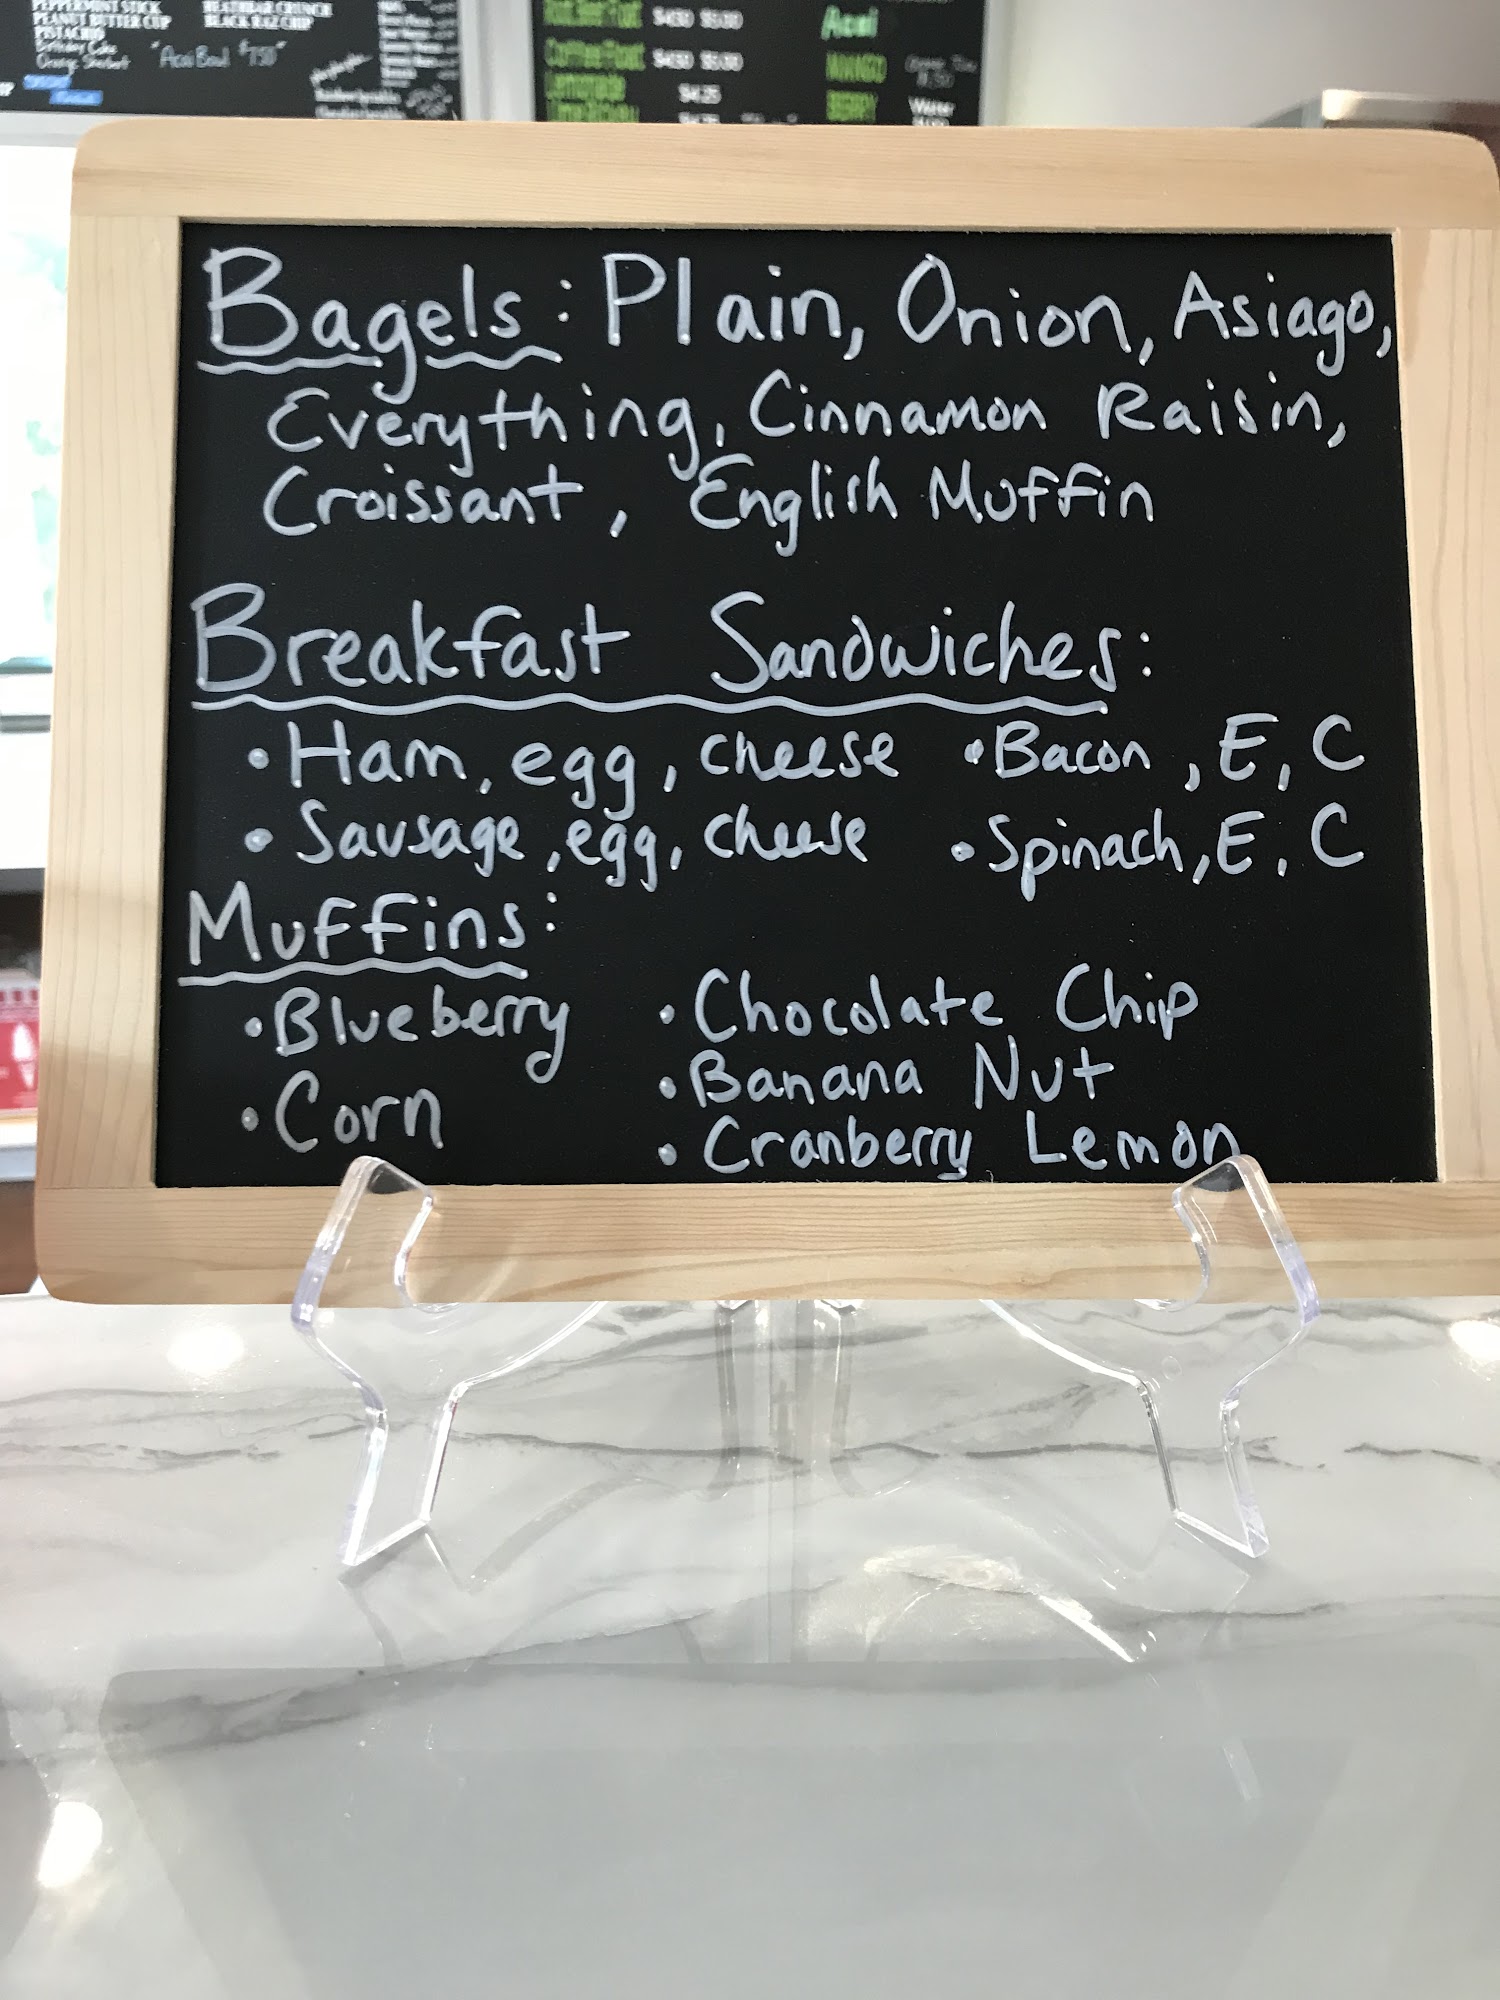 PEPPERMINT STICK
PEANUT BUTTER CUP
PISTACHIO
Birthday Cake
Orange Sherbert
HEATHBAR CRUNCH
BLACK RAZ CHIP
"Acai Bowl $7.50"
Root Beer Float $4.50 $5.00
Coffee Float $4.50 $5.00
Lemonade $4.25
Acai
MANGO
BERRY
Water
Bagels: Plain, Onion, Asiago,
Everything, Cinnamon Raisin,
Croissant, English Muffin
Breakfast Sandwiches:
• Ham, egg, cheese • Bacon, E, C
• Sausage, egg, cheese • Spinach, E, C
Muffins:
• Blueberry • Chocolate Chip
• Banana Nut
• Corn
• Cranberry Lemon